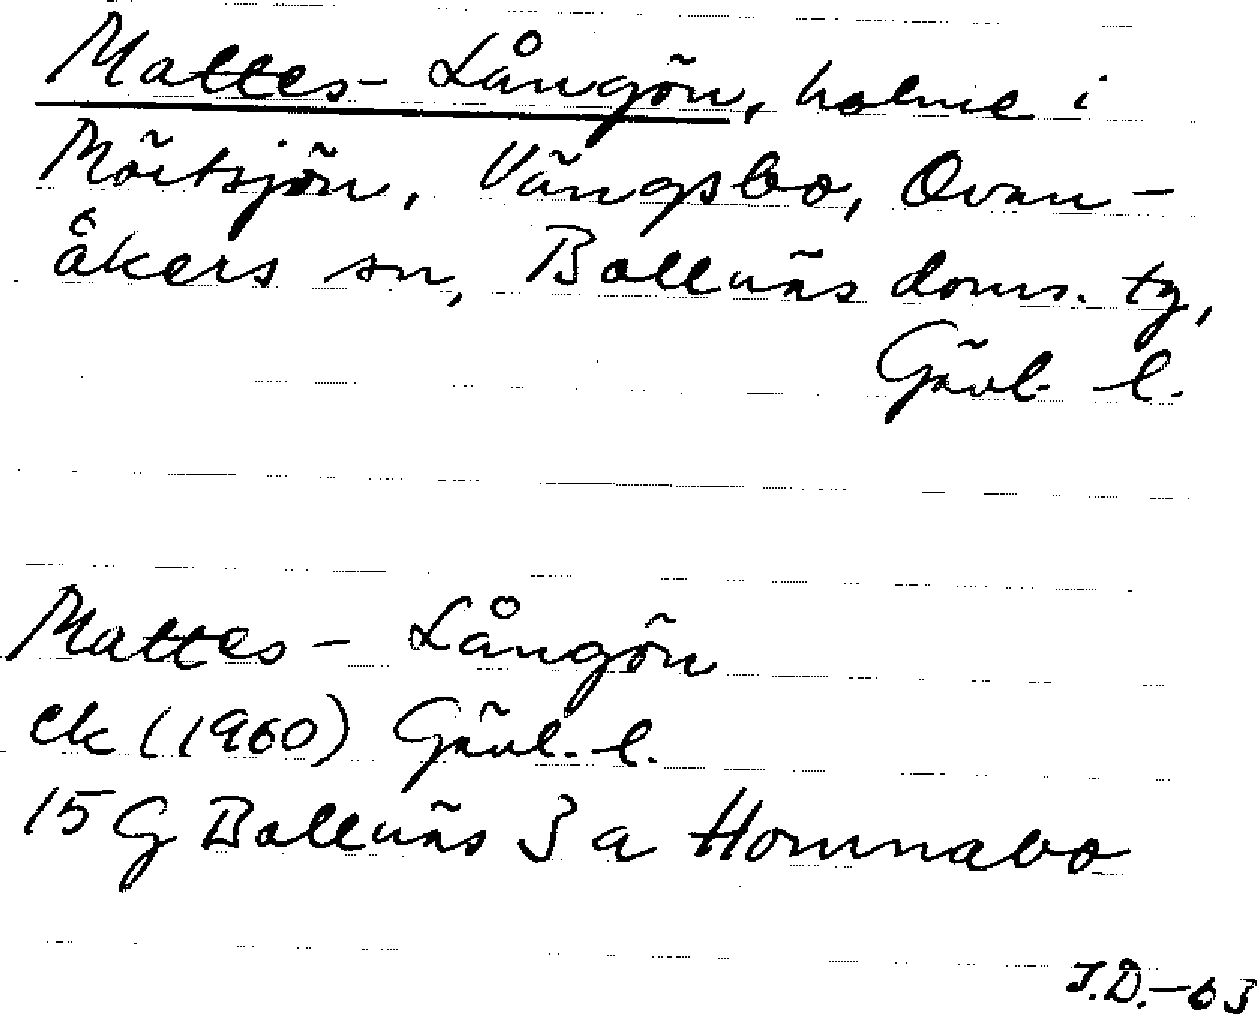 Mattes-Långön, holme i
Mörtsjön, Vängsbo, Ovan-
åkers sn, Bollnäs doms. tg,
Gävl. l.
Mattes-Långön
ek (1960) Gävl. l.
15 G Bollnäs 3 a Homnabo
J.D.-63